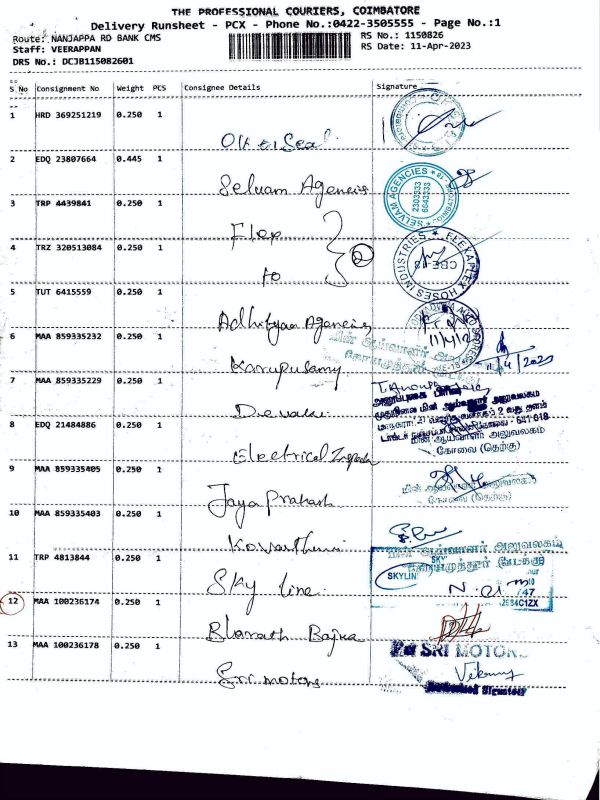 THE PROFESSIONAL COURIERS, COIMBATORE
Delivery Runsheet - PCX - Phone No.:0422-3505555 - Page No.:1
Route: NANJAPPA RD BANK CMS RS No.: 1150826
Staff: VEERAPPAN RS Date: 11-Apr-2023
DRS No.: DCJB115082601
S No Consignment No Weight PCS Consignee Details Signature
1 HRD 369251219 0.250 1
2 EDQ 23807664 0.445 1
Selvam Agencies
SELVAM AGENCIES COIMBATORE
2303333
6643333
3 TRP 4439841 0.250 1
Flex
2
4 TRZ 320513084 0.250 1
to
ELEXAFLEX HOSES INDUSTRIES
CBE-18
5 TUT 6415559 0.250 1
Adhityaa Agencies
6 MAA 859335232 0.250 1
Karupusamy
11/4/2023
7 MAA 859335229 0.250 1
Devaki
8 EDQ 21484886 0.250 1
Electrical
மின் ஆய்வாளர் அலுவலகம்
கோவை (தெற்கு)
9 MAA 859335405 0.250 1
Jaya Prakash
கோவை (தெற்கு)
10 MAA 859335403 0.250 1
11 TRP 4813844 0.250 1
Sky line
SKYLIN
12 MAA 100236174 0.250 1
Bharath Bajna
13 MAA 100236178 0.250 1
Sri motors
For SRI MOTORS
Authorised Signatory